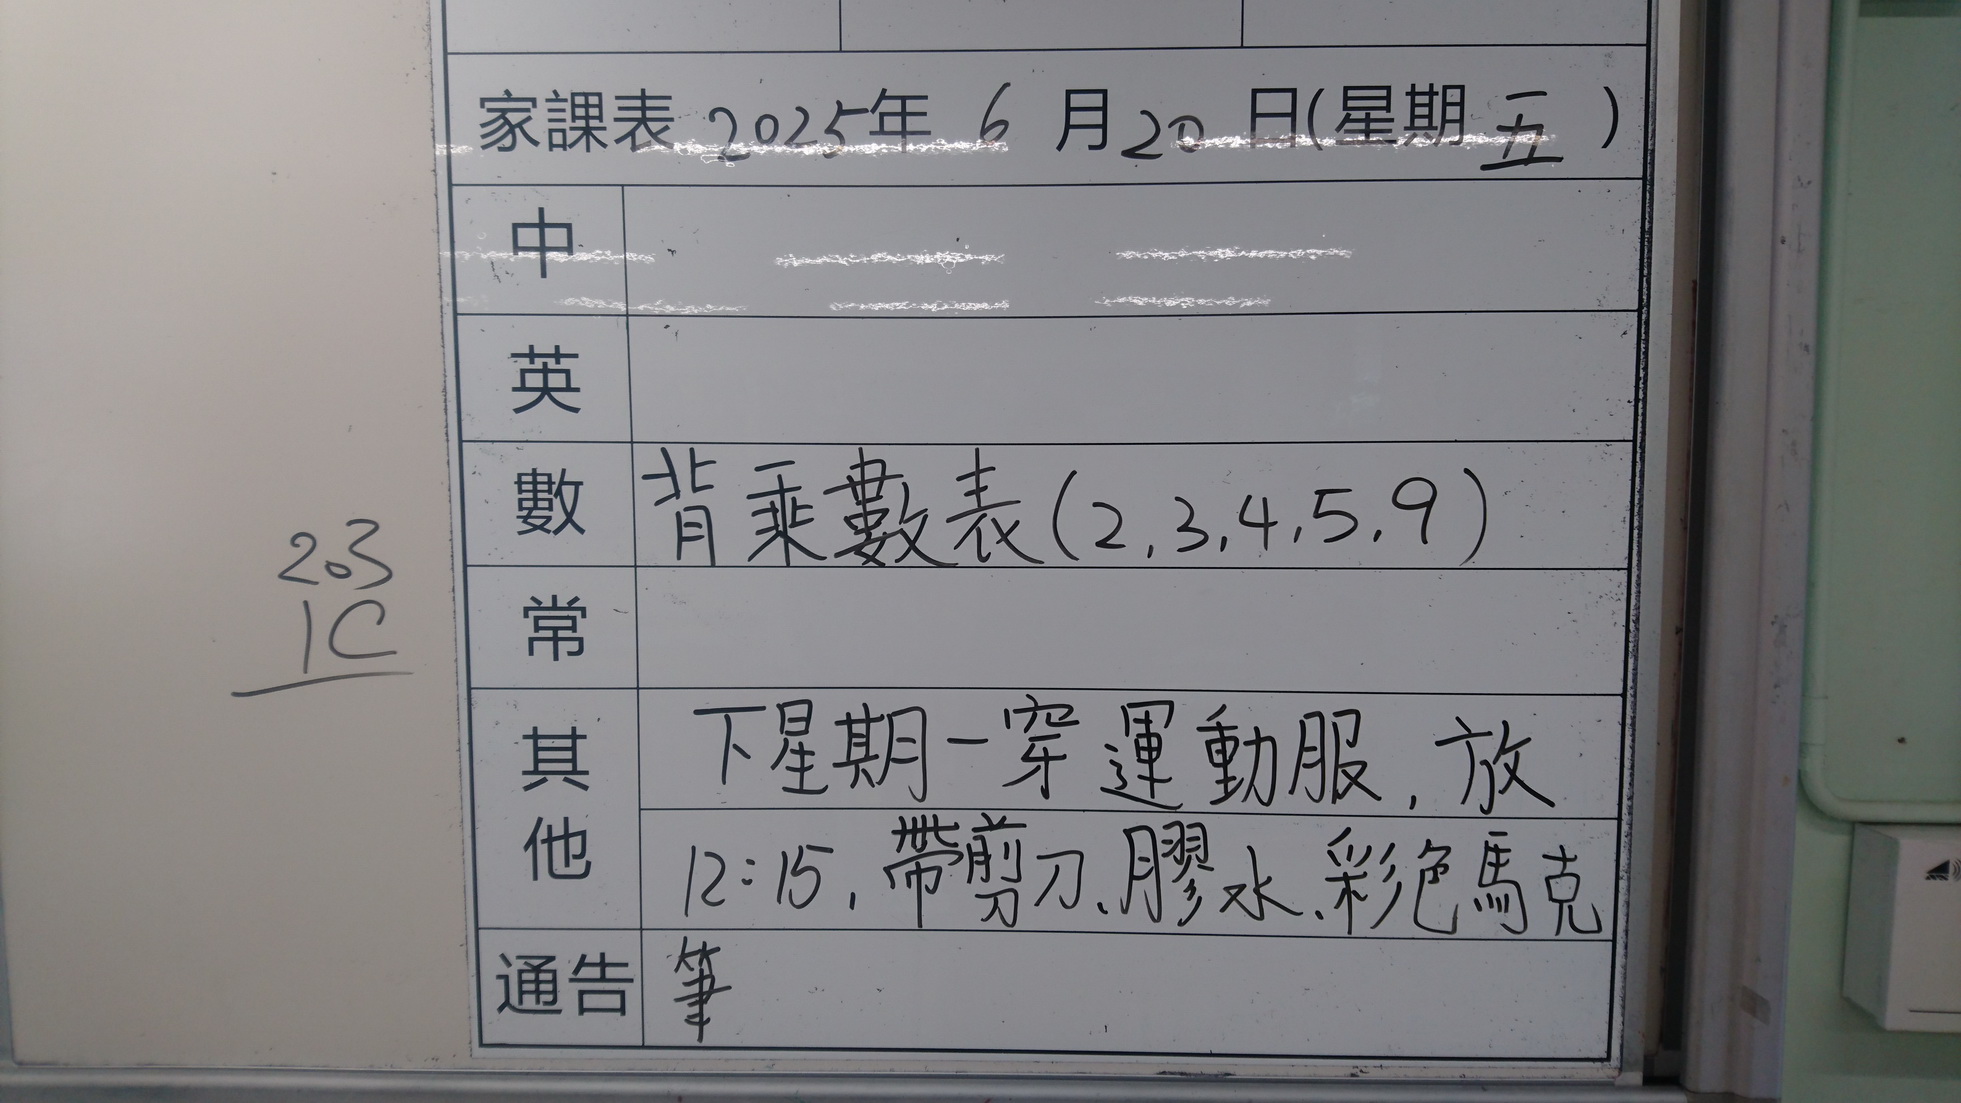 家課表 2025年 6 月 20 日(星期 五 )
中
英
數 背乘數表(2,3,4,5,9)
常
其他 下星期一穿運動服,放
12:15,帶剪刀、膠水、彩色馬克
通告 筆
203
1C